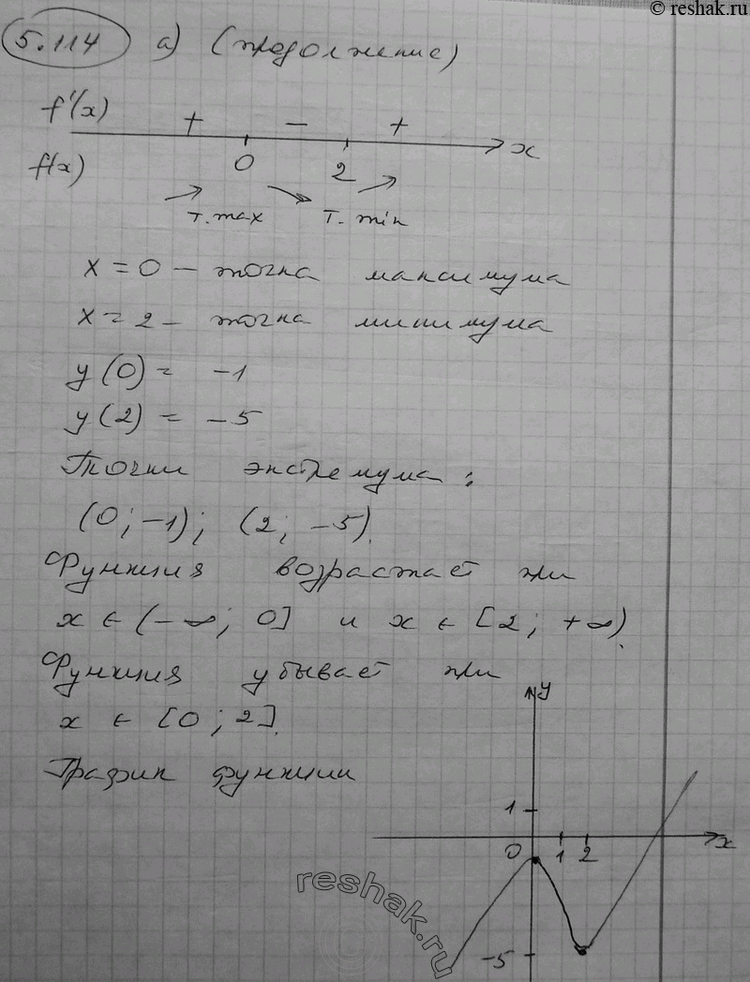 © reshak.ru
5.114 а) (продолжение)
f'(x) + − + x
f(x) 0 2
т. max т. min
x = 0 — точка максимума
x = 2 — точка минимума
y(0) = -1
y(2) = -5
Точки экстремума:
(0; -1); (2; -5).
Функция возрастает при
x ∈ (-∞; 0] и x ∈ [2; +∞).
Функция убывает при
x ∈ [0; 2].
График функции
y
1
0 1 2 x
-5
reshak.ru